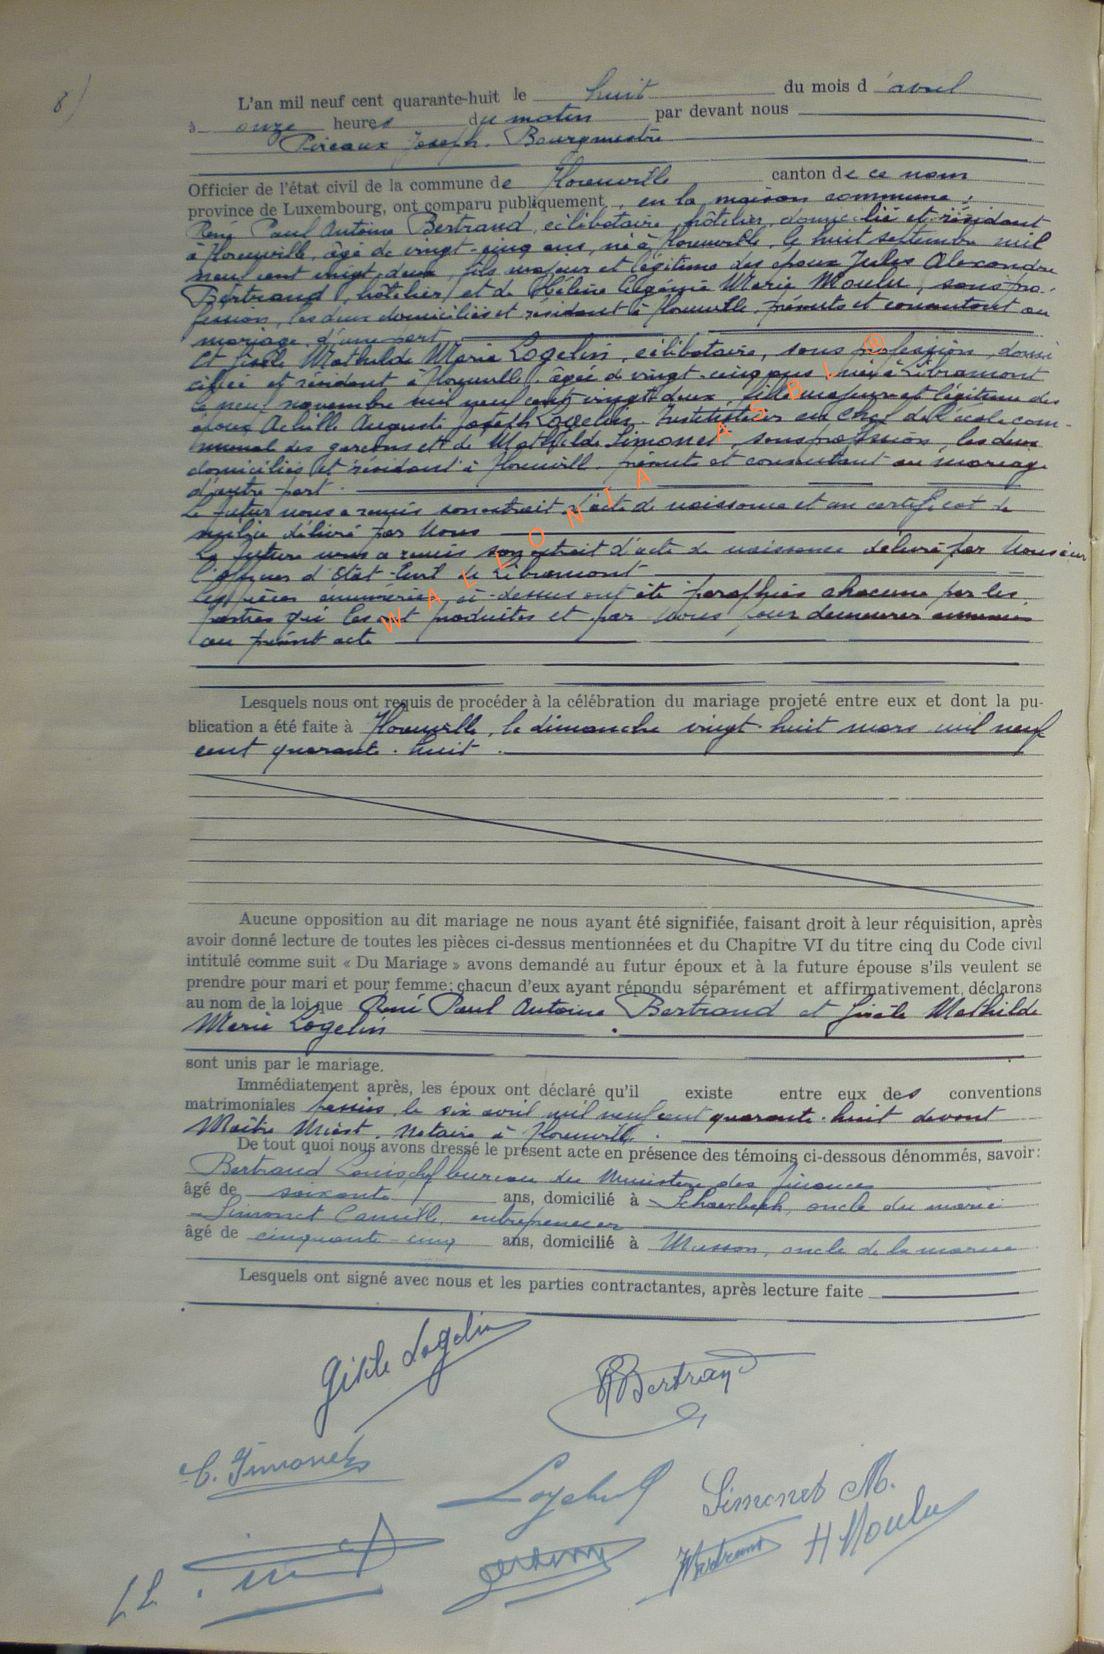 8)
L'an mil neuf cent quarante-huit le huit du mois d'avril
à onze heures du matin par devant nous
Pireaux Joseph. Bourgmestre
Officier de l'état civil de la commune de Florenville canton de ce nom
province de Luxembourg, ont comparu publiquement, en la maison commune :
René Paul Antoine Bertrand, célibataire, hôtelier, domicilié et résidant
à Florenville, âgé de vingt-cinq ans, né à Florenville, le huit septembre mil
neuf cent vingt-deux, fils majeur et légitime des époux Jules Alexandre
Bertrand, hôtelier, et de Hélène Eugénie Marie Moulu, sans pro-
fession, les deux domiciliés et résidant à Florenville, présents et consentant au
mariage, d'une part
Et Gisèle Mathilde Marie Logelin, célibataire, sans profession, domi
ciliée et résidant à Florenville, âgée de vingt-cinq ans, née à Libramont
le neuf novembre mil neuf cent vingt-deux, fille majeure et légitime des
époux Achille Auguste Joseph Logelin, Instituteur en chef de l'école com-
munal des garçons et de Mathilde Simonet, sans profession, les deux
domiciliés et résidant à Florenville, présents et consentant au mariage
d'autre part.
Le futur nous a remis son extrait d'acte de naissance et un certificat de
milice délivré par Nous
La future nous a remis son extrait d'acte de naissance délivré par Monsieur
l'officier d'Etat-Civil de Libramont
Les pièces énumérées ci-dessus ont été paraphées chacune par les
parties qui les ont produites et par Nous pour demeurer annexées
au présent acte
WALLONIA ASBL ®
Lesquels nous ont requis de procéder à la célébration du mariage projeté entre eux et dont la pu-
blication a été faite à Florenville, le dimanche vingt-huit mars mil neuf
cent quarante-huit.
Aucune opposition au dit mariage ne nous ayant été signifiée, faisant droit à leur réquisition, après
avoir donné lecture de toutes les pièces ci-dessus mentionnées et du Chapitre VI du titre cinq du Code civil
intitulé comme suit « Du Mariage » avons demandé au futur époux et à la future épouse s'ils veulent se
prendre pour mari et pour femme; chacun d'eux ayant répondu séparément et affirmativement, déclarons
au nom de la loi que René Paul Antoine Bertrand et Gisèle Mathilde
Marie Logelin
sont unis par le mariage.
Immédiatement après, les époux ont déclaré qu'il existe entre eux des conventions
matrimoniales passées le six avril mil neuf cent quarante-huit devant
Maître Miest, Notaire à Florenville.
De tout quoi nous avons dressé le présent acte en présence des témoins ci-dessous dénommés, savoir:
Bertrand Louis chef bureau du Ministère des finances
âgé de soixante ans, domicilié à Schaerbeek, oncle du marié
Simonet Camille, entrepreneur
âgé de cinquante-cinq ans, domicilié à Musson, oncle de la mariée
Lesquels ont signé avec nous et les parties contractantes, après lecture faite
Gisèle Logelin
R Bertrand
C. Simonet
Logelin
Simonet M.
Bertrand
H Moulu